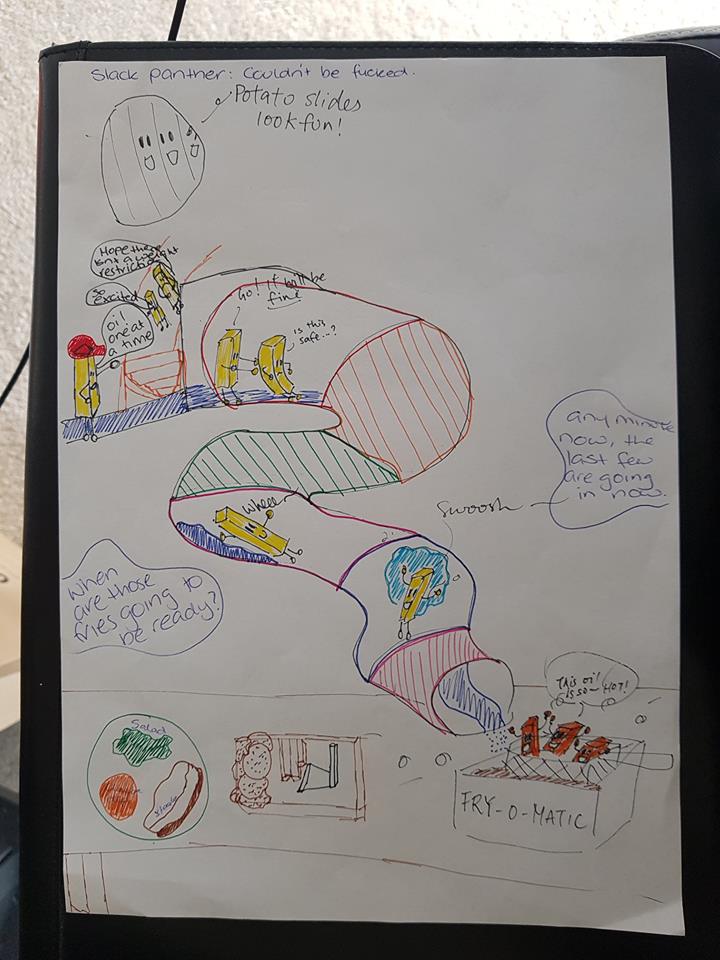 Slack Panther: Couldn't be fucked.
Potato slides
look fun!
Hope there
isnt a weight
restriction
so
excited
oi!
one at
a time
Go! It will be
fine
is this
safe...?
Whee
Swoosh
any minute
now, the
last few
are going
in now.
When
are those
fries going to
be ready?
This oil
is so HOT!
Salad
FRY-O-MATIC